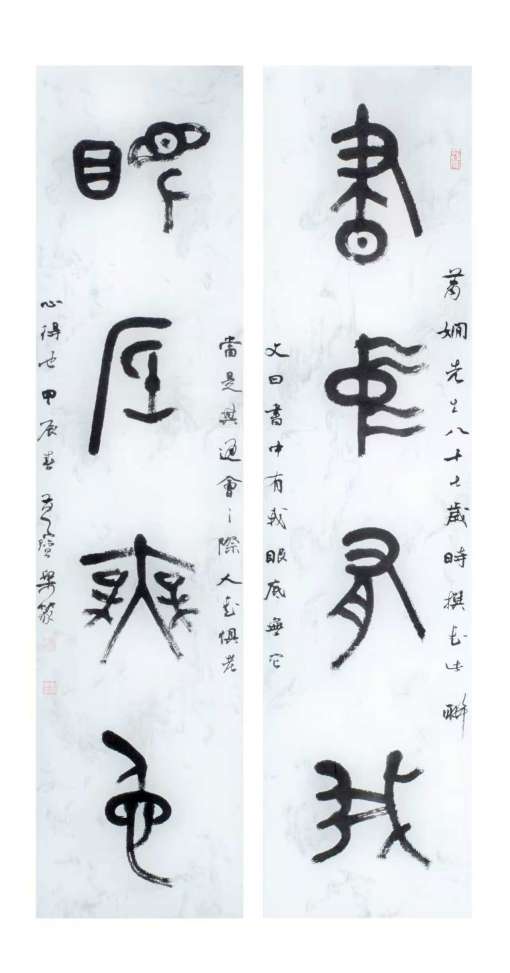 蕭嫻先生八十七歲時撰書法聯
書中有我
文曰書中有我眼底無它
當是其通會之際人書俱老
眼底無它
心得也甲辰春